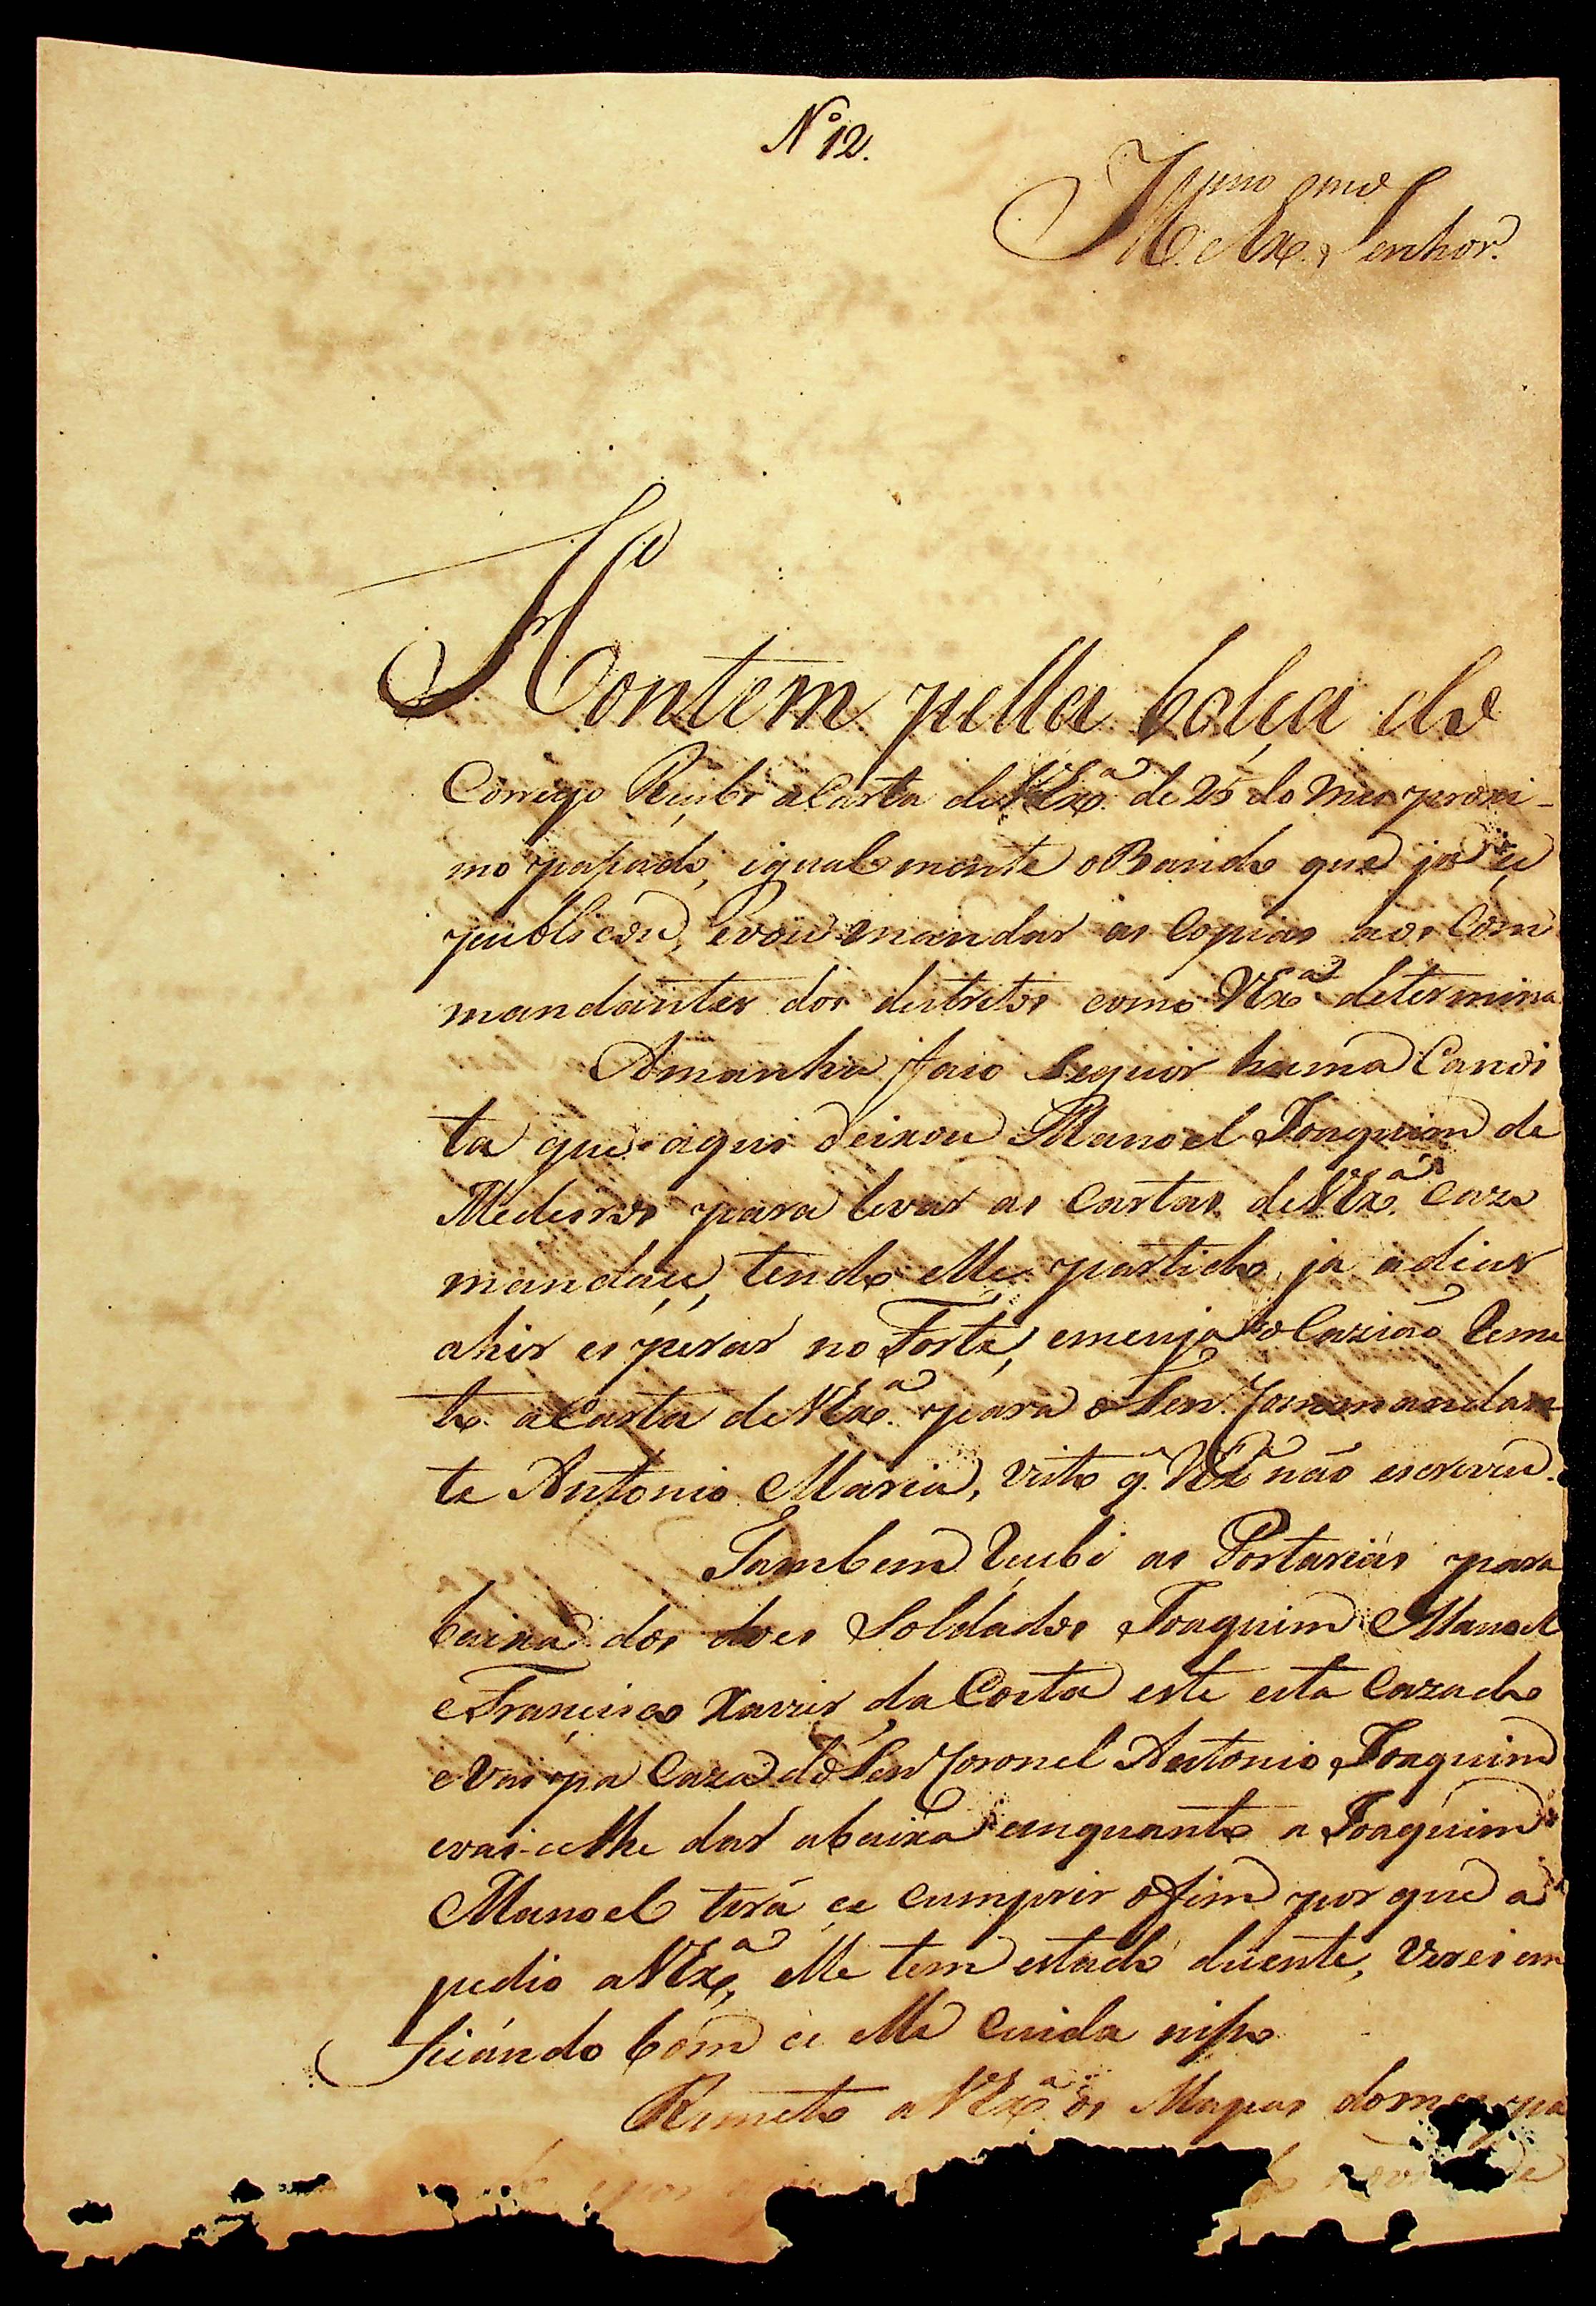 Nº 12.
Illmo Exmo Senhor.
Hontem pella bolça do
Correyo Reçebi a Carta de VExª de 25 do mes proxi-
mo paſsado, igualmente o Bando que ja çe
publicou, evou mandar as Copias aos Com
mandantes dos destretos como VExª determina
Amanha faço Seguir huma Canoi
ta que aqui deixou Manoel Joaquim de
Medeiros para levar as Cartas de VExª Cazo
mandaçe, tendo elle partido ja adias
ahir esperar no Forte, emesma ocazião Reme
to a Carta de VExª para o Sen Commandan
te Antonio Maria, visto q. VExª não escreveu.
Tambem Reçebi as Portarias para
baixa dos does Soldados Joaquim Manoel
e Françisco Xavier da Costa este esta Cazado
e Vai pa Caza do Sen Coronel Antonio Joaquim
evai-çelhe dar abaixa emquanto a Joaquim
Manoel terá çe cumprir o fim por que a
pedio a VExª, elle tem estado duente, Verei em
ficándo bom çe elle Cuida niſso
Remeto a VExª os Mapas do mes pa